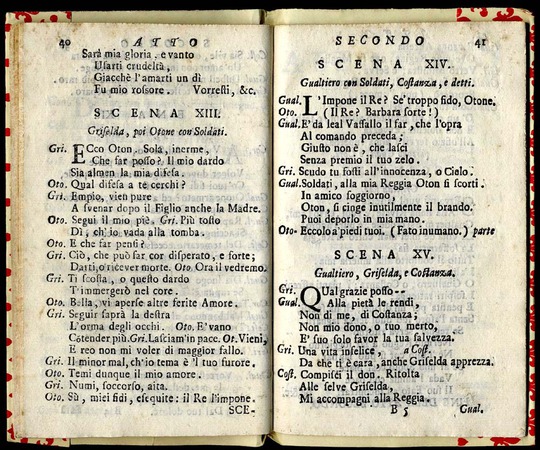 40 ATTO
Sarà mia gloria, e vanto
Usarti crudeltà,
Giacchè l'amarti un dì
Fu mio rossore. Vorresti, &c.
SCENA XIII.
Griselda, poi Otone con Soldati.
Gri. ECco Oton. Sola, inerme,
Che far posso? Il mio dardo
Sia almen la mia difesa.
Oto. Qual difesa a te cerchi?
Gri. Empio, vien pure
A svenar dopo il Figlio anche la Madre.
Oto. Segui il mio piè. Gri. Più tosto
Dì, ch'io vada alla tomba.
Oto. E che far pensi?
Gri. Ciò, che può far cor disperato, e forte;
Darti, o ricever morte. Oto. Ora il vedremo.
Gri. Ti scosta, o questo dardo
T'immergerò nel core.
Oto. Bella, vi aperse altre ferite Amore.
Gri. Seguir saprà la destra
L'orma degli occhi. Oto. E' vano
Cōtender più. Gri. Lasciam'in pace. Ot. Vieni,
E reo non mi voler di maggior fallo.
Gri. Il minor mal, ch'io tema è 'l tuo furore.
Oto. Temi dunque il mio amore.
Gri. Numi, soccorso, aita.
Oto. Sù, miei fidi, eseguite: il Re l'impone.
SCE-
SECONDO 41
SCENA XIV.
Gualtiero con Soldati, Costanza, e detti.
Gual. L'Impone il Re? Se' troppo fido, Otone.
Oto. (Il Re? Barbara sorte!)
Gual. E' da leal Vassallo il far, che l'opra
Al comando preceda;
Giusto non è, che lasci
Senza premio il tuo zelo.
Gri. Scudo tu fosti all'innocenza, o Cielo.
Gual. Soldati, alla mia Reggia Oton si scorti.
In amico soggiorno,
Oton, si cinge inutilmente il brando.
Puoi deporlo in mia mano.
Oto. Eccolo a' piedi tuoi. (Fato inumano.) parte
SCENA XV.
Gualtiero, Griselda, e Costanza.
Gri. QUal grazie posso--
Gual. Alla pietà le rendi,
Non di me, di Costanza;
Non mio dono, o tuo merto,
E' suo solo favor la tua salvezza.
Gri. Una vita infelice, a Cost.
Da che ti è cara, anche Griselda apprezza.
Cost. Compisci il don. Ritolta
Alle selve Griselda,
Mi accompagni alla Reggia.
B 5 Gual.